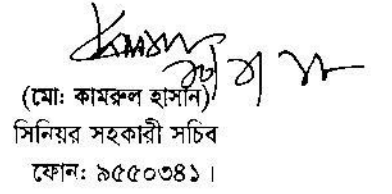 (মো: কামরুল হাসান)
সিনিয়র সহকারী সচিব
ফোন: ৯৫৫০৩৪১।